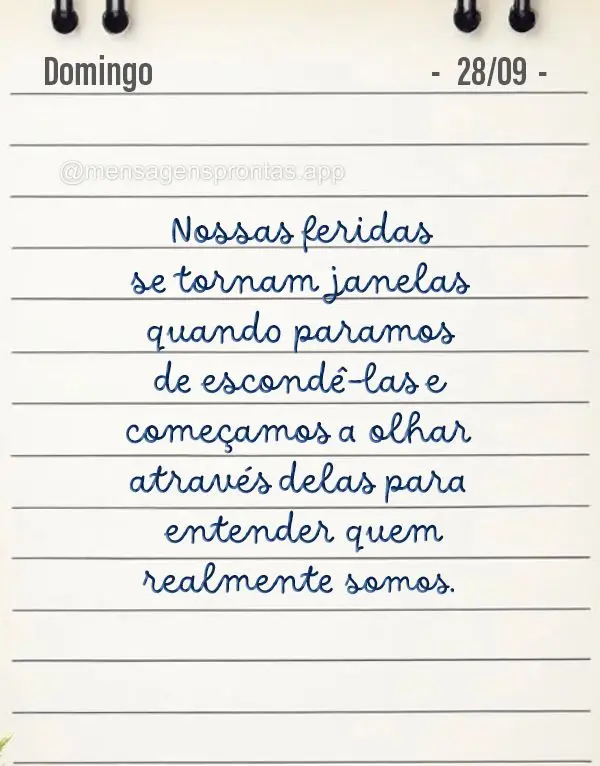 Domingo - 28/09 -
@mensagensprontas.app
Nossas feridas
se tornam janelas
quando paramos
de escondê-las e
começamos a olhar
através delas para
entender quem
realmente somos.